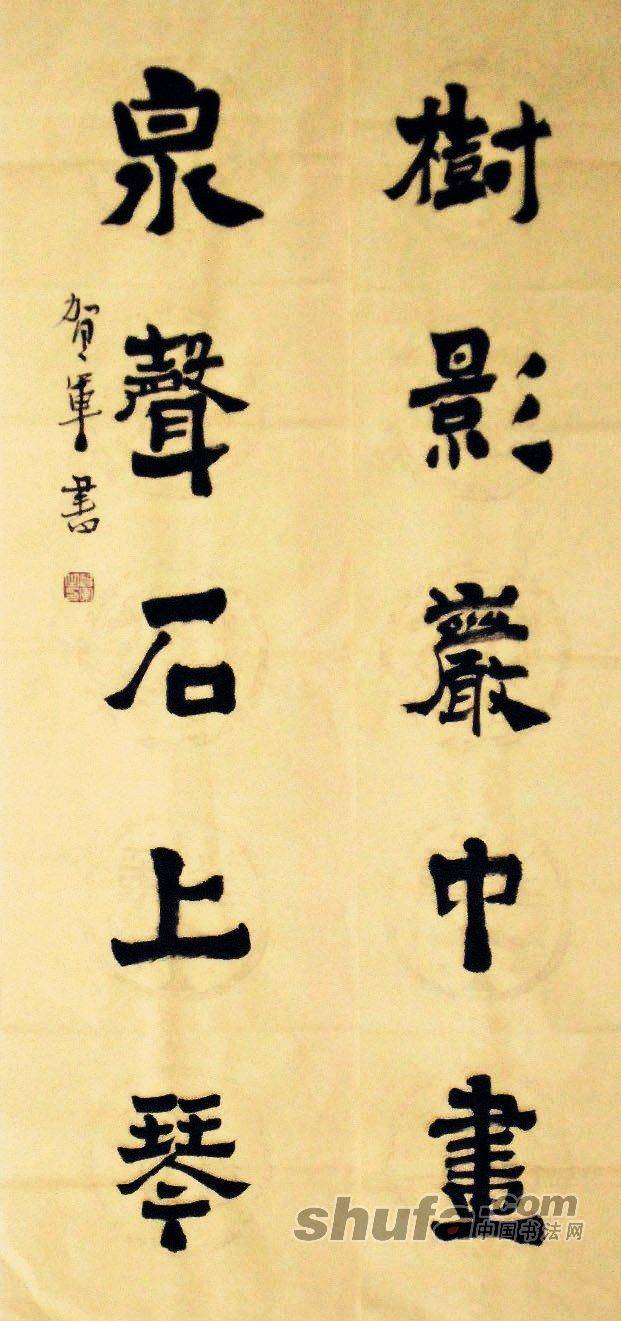 樹影巖中畫
泉聲石上琴
贺军書
shufa.com
中国书法网